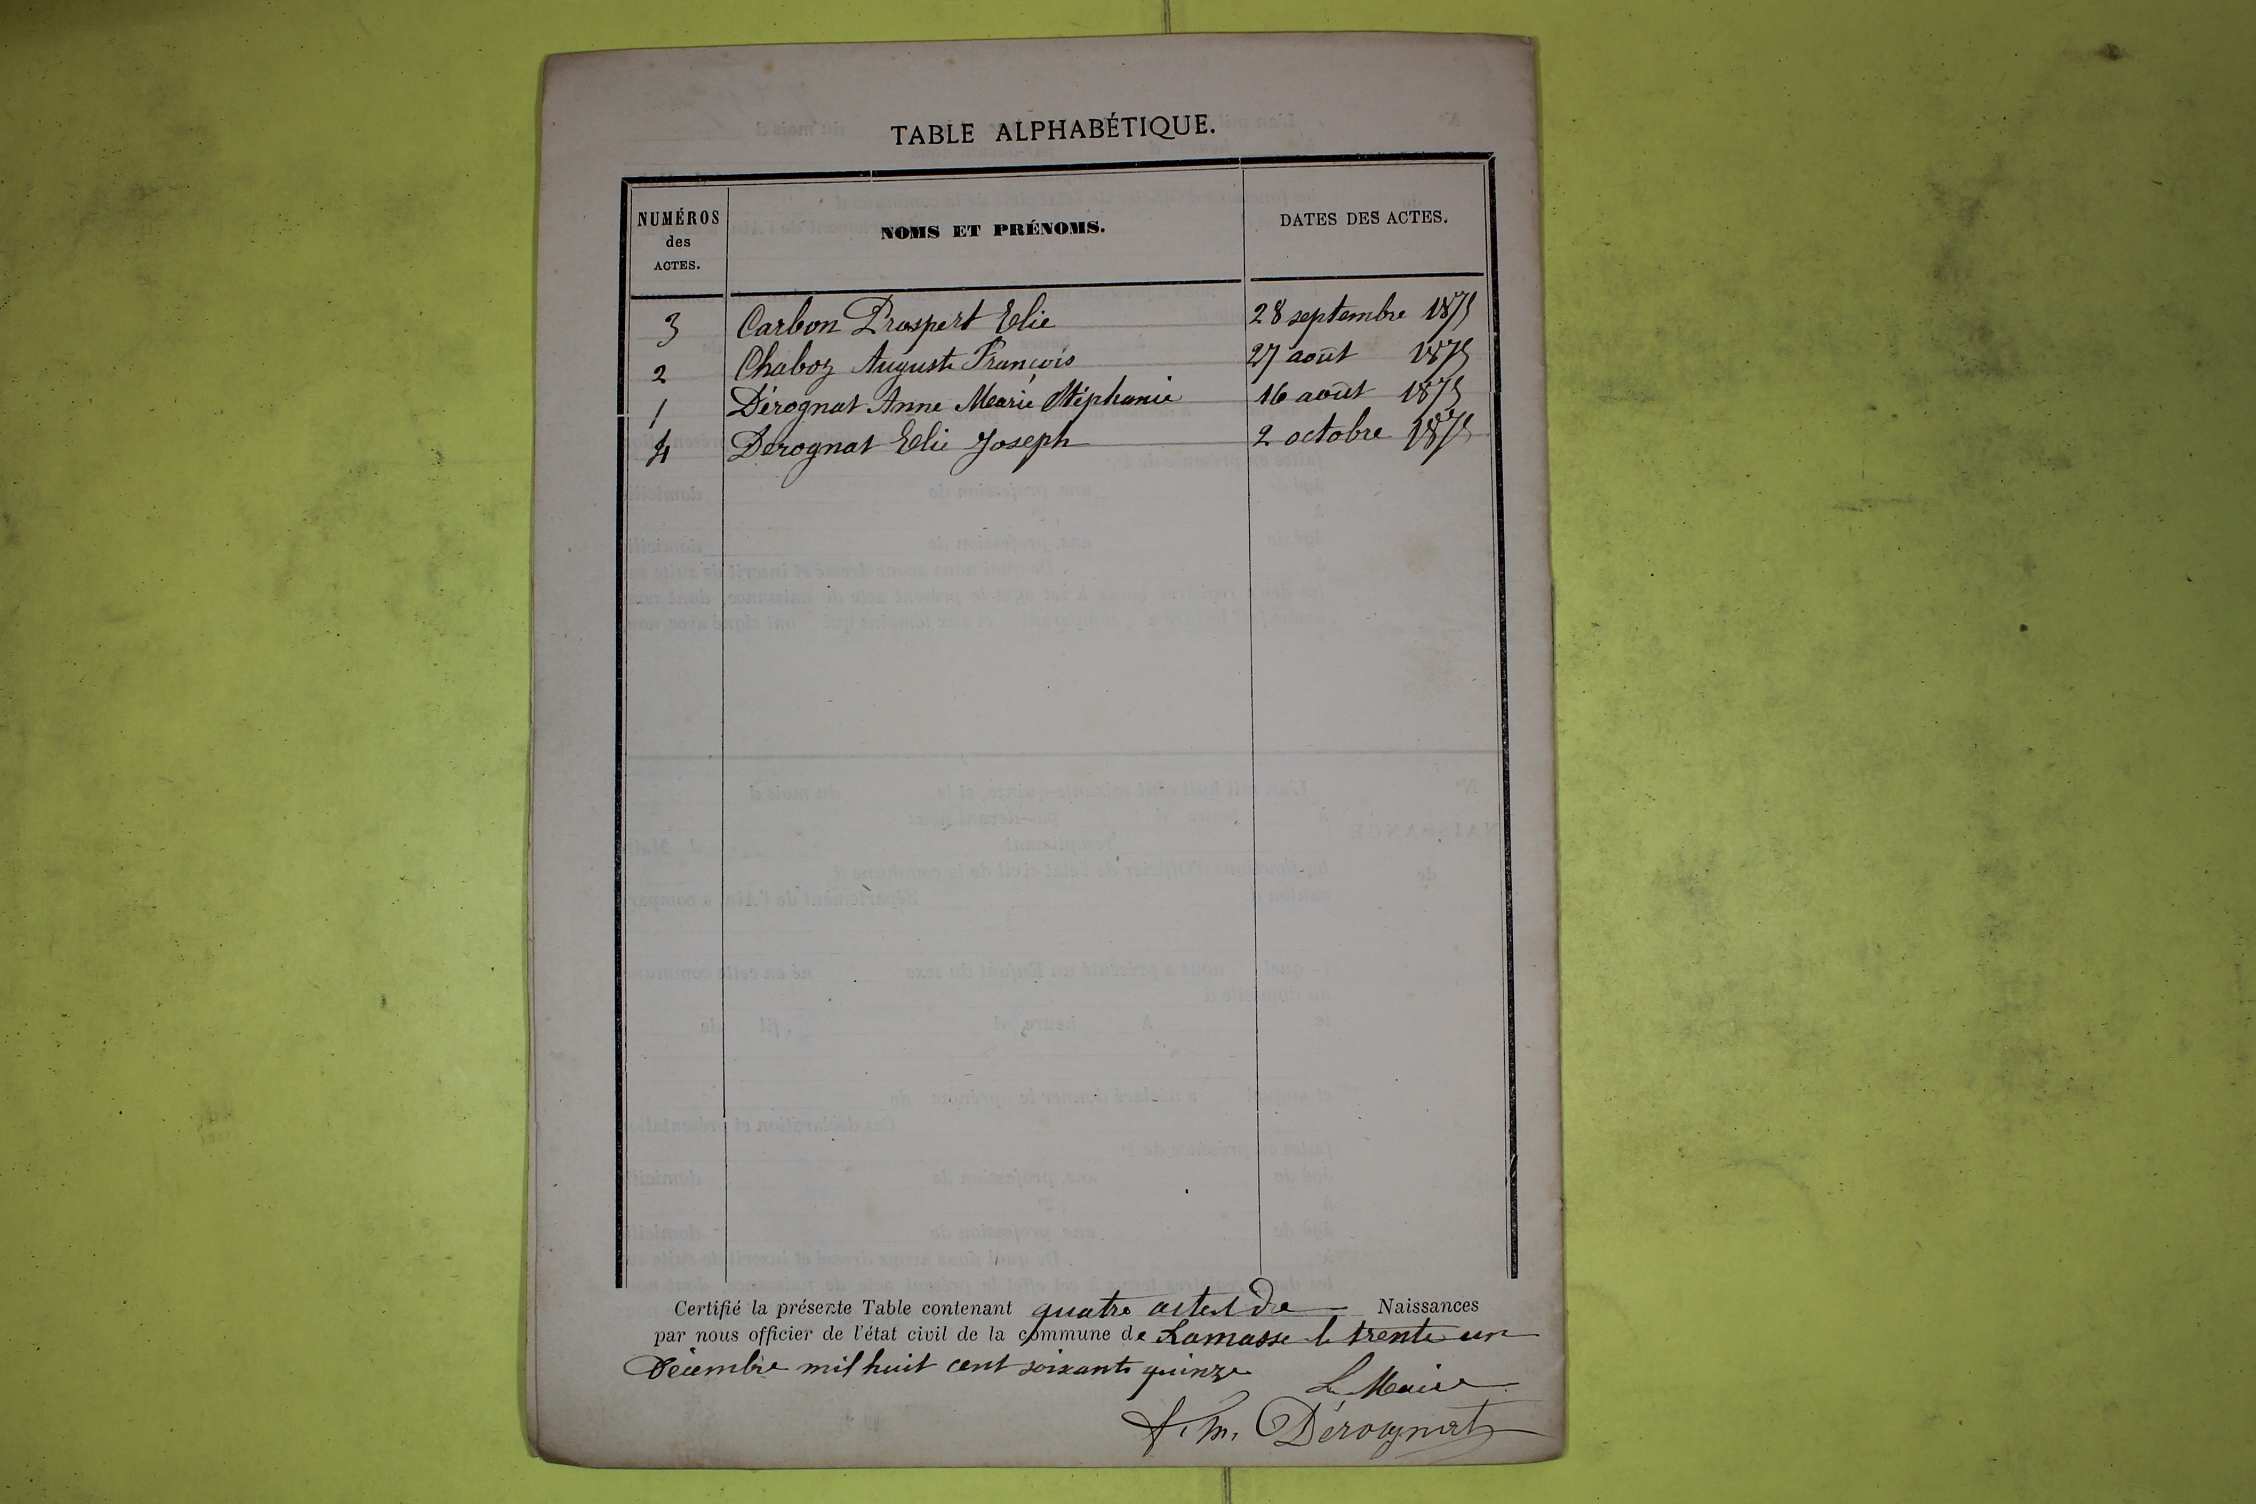 TABLE ALPHABÉTIQUE.
NUMÉROS des ACTES. NOMS ET PRÉNOMS. DATES DES ACTES.
3 Carbon Prospert Elie 28 septembre 1875
2 Chaboz Auguste François 27 août 1875
1 Dérognat Anne Marie Stéphanie 16 août 1875
4 Derognat Elie Joseph 2 octobre 1875
Certifié la présente Table contenant quatre actes de Naissances
par nous officier de l'état civil de la commune de Samasse le trente un
Décembre mil huit cent soixante quinze
Le Maire
Dérognat